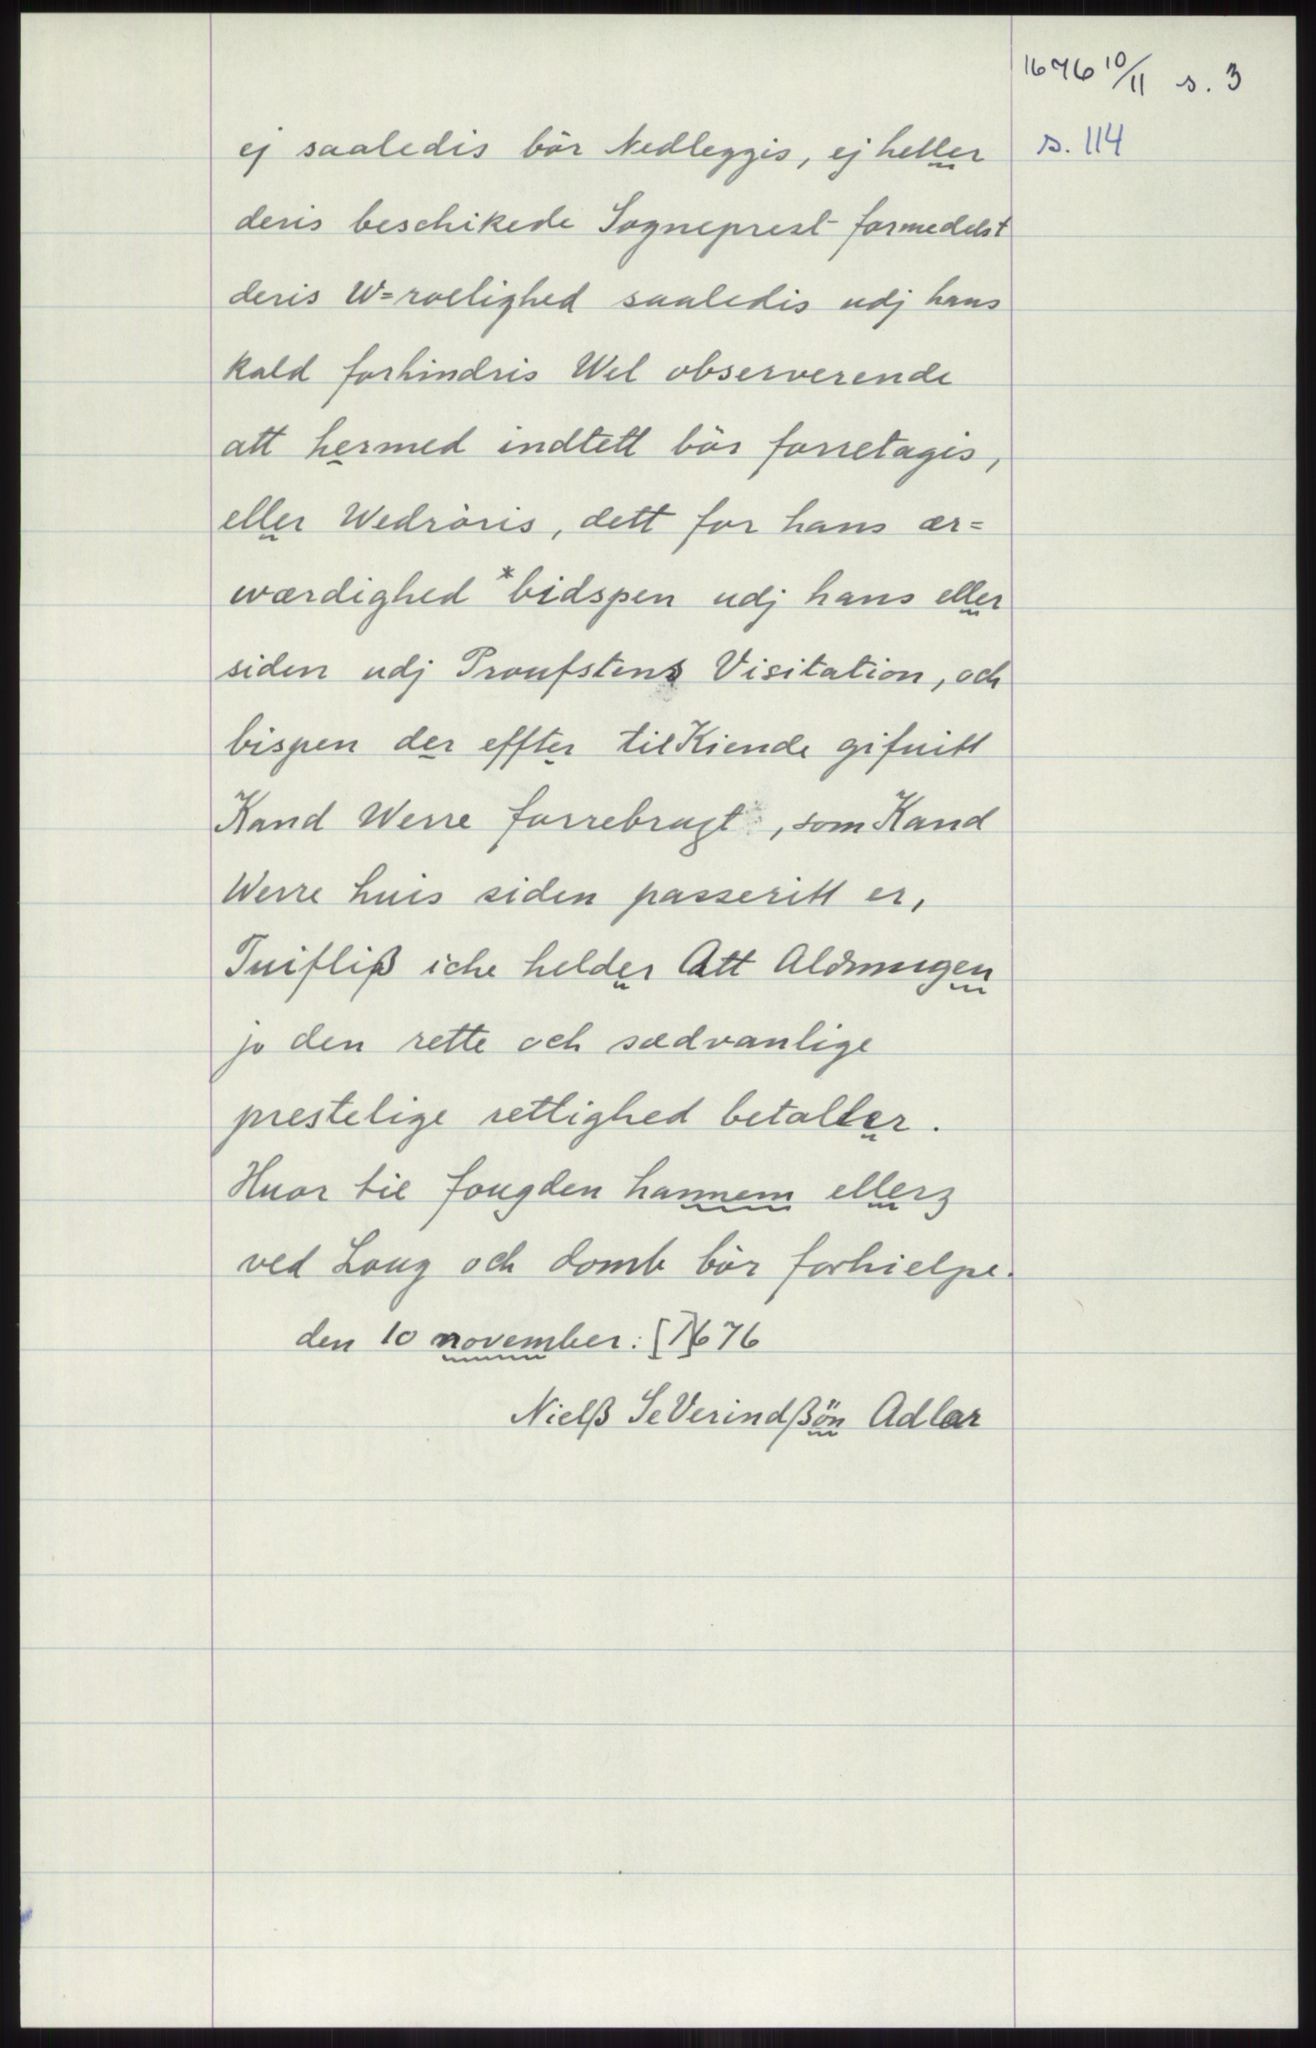 1676 10/11 s. 3
s. 114
ej saaledis bör Nedleggis, ej heller
deris beschikede Sogneprest formedelst
deris W=roelighed saaledis udj hans
kald forhindris Wel observerende
att hermed indtett bör forretagis,
eller Wedröris, dett for hans ær=
værdighed *bidspen udj hans eller
siden udj Proufstens Visitation, och
bispen der effter tilKiende gifuitt
Kand Werre forrebragt, som Kand
Werre huis siden passeritt er,
Tuifliß iche helder Att Almugen
jo den rette och sædvanlige
prestelige rettighed betaller.
Huor til fougden hannem ellerz
ved Loug och domb bör forhielpe.
den 10 november: [1]676
Nielß SeVerindßön Adler